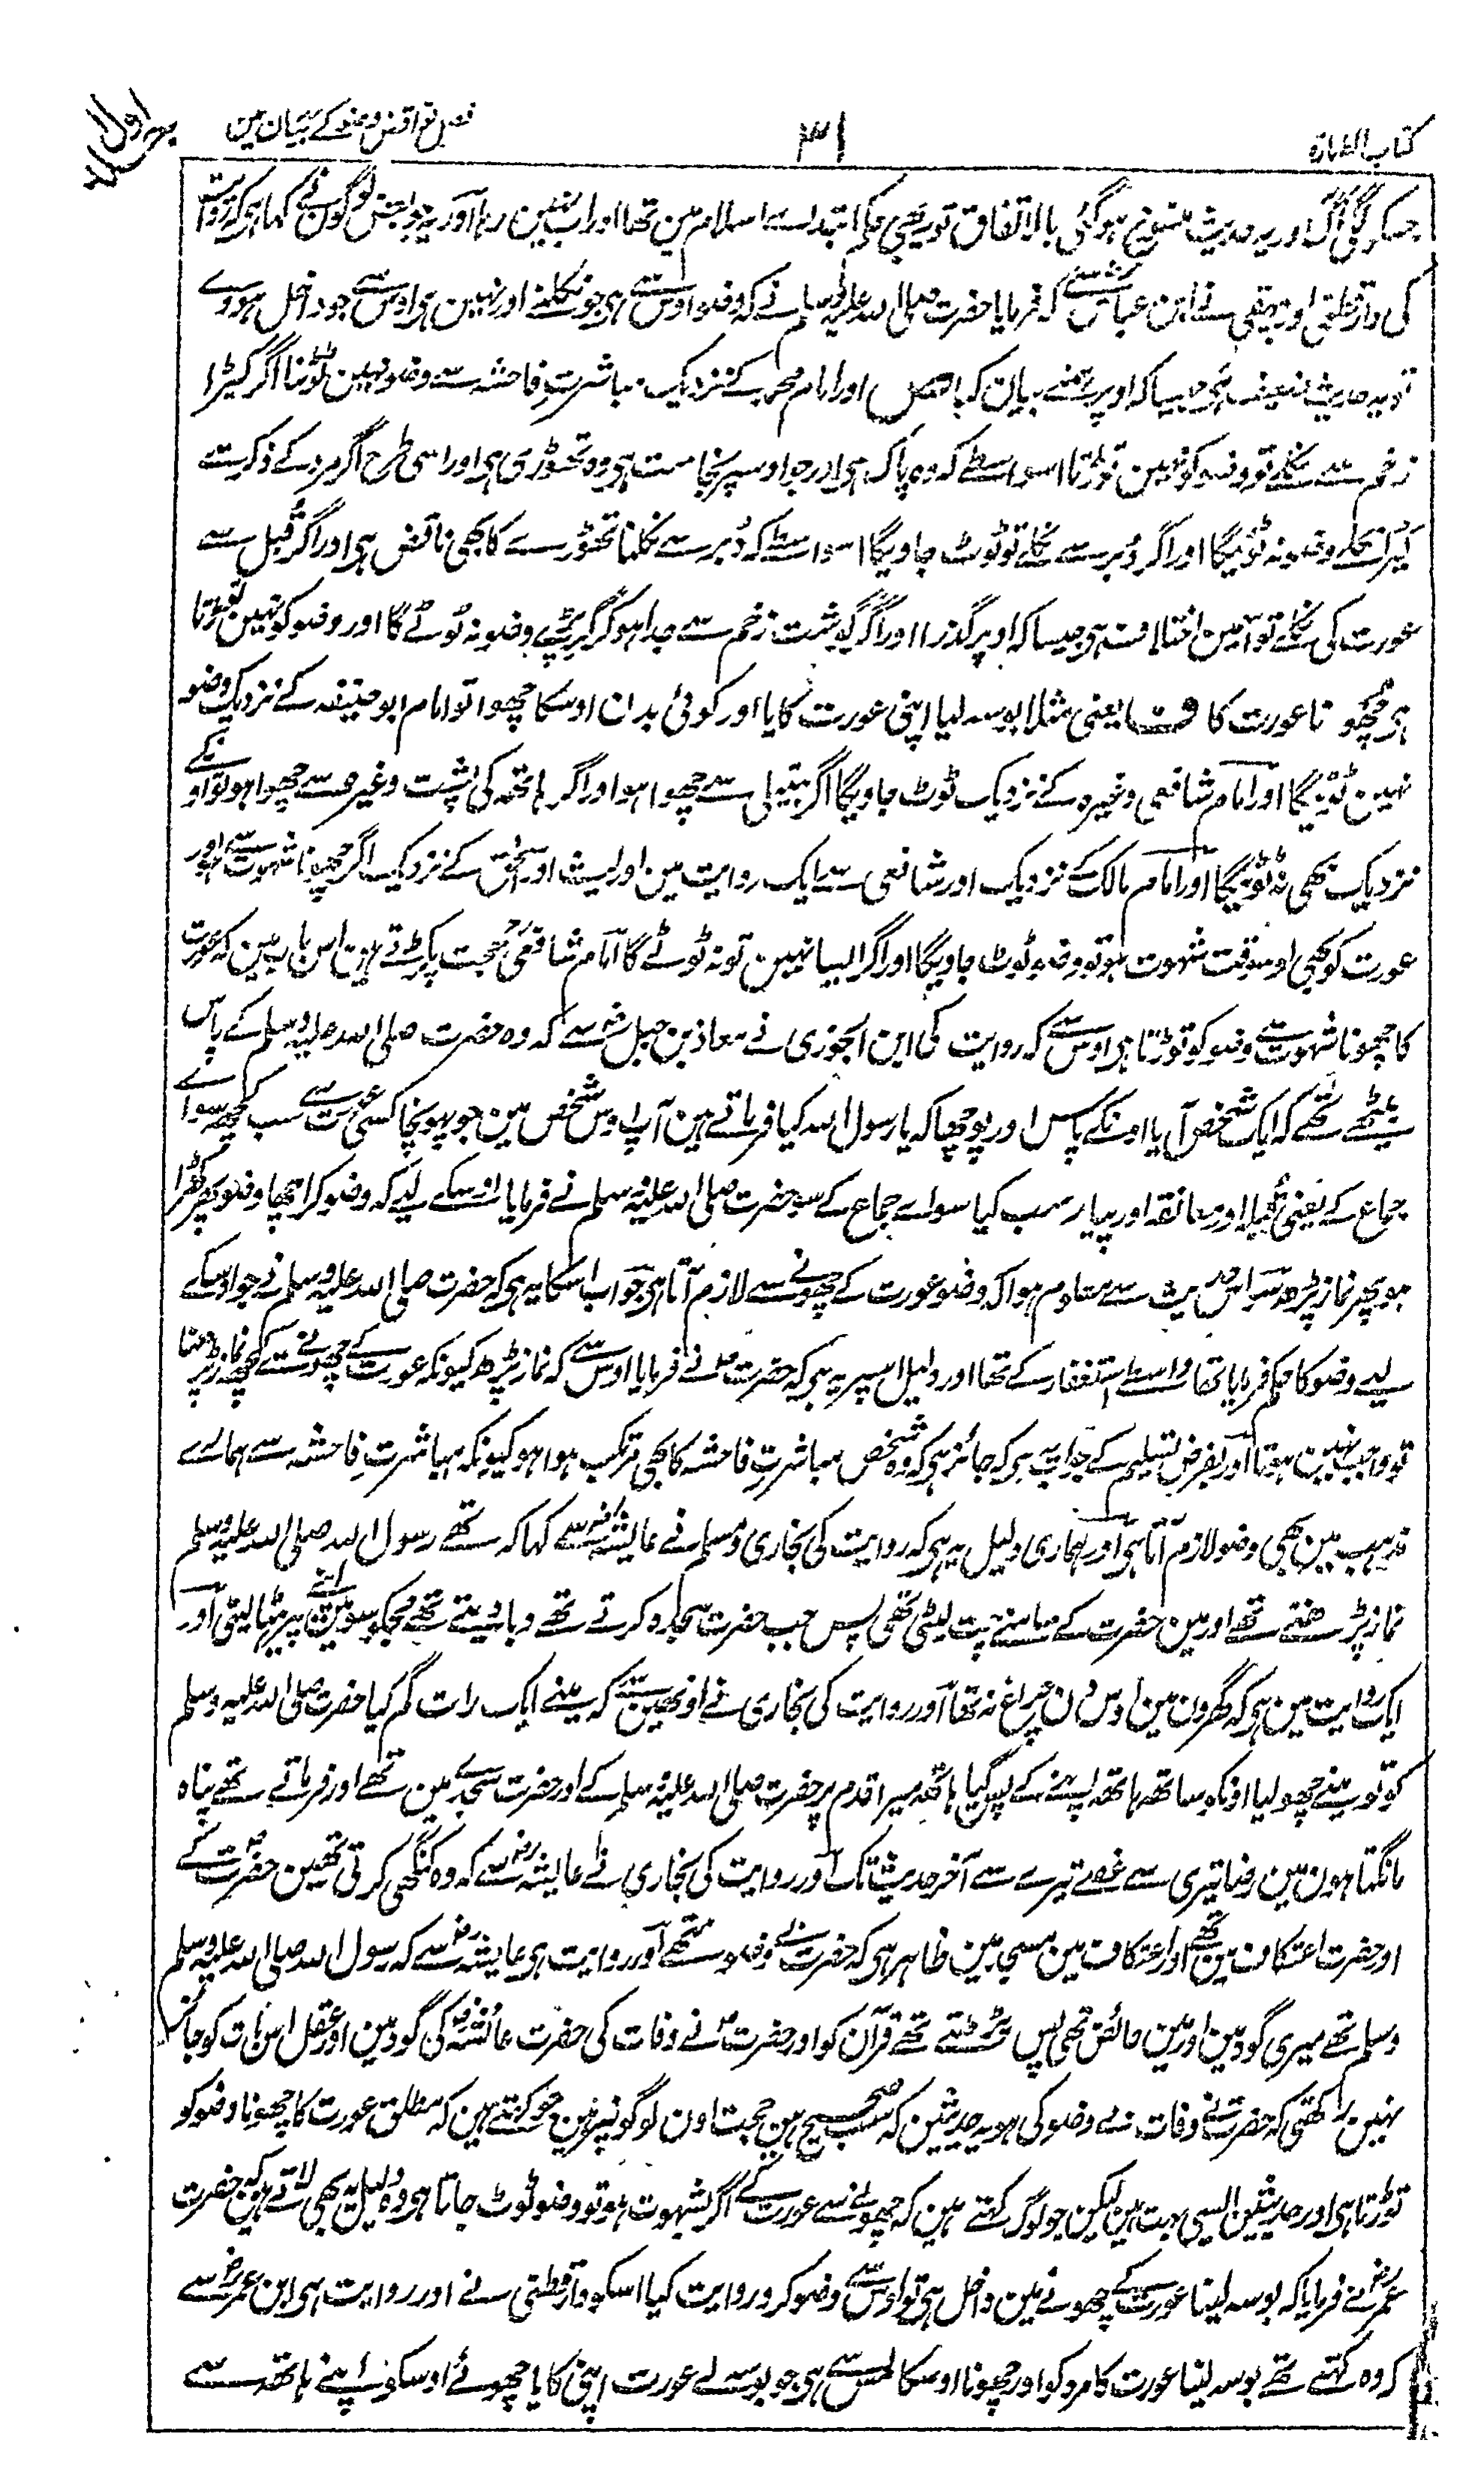 کتاب الطہارۃ ۳۱ فصل نواقض وضو کے بیان مین
جسکو لگی آگ اور یہ حدیث منسوخ ہوگئی بالاتفاق تو یہ بھی حکم ابتداے اسلام مین تھا اور اب نہین رہا اور یہ جو بعض لوگون نے کہا ہی کہ روایت
کی دارقطنی اور بیہقی نے ابن عباس سے کہ فرمایا حضرت صلی اللہ علیہ وسلم نے کہ وضو اوس سے ہی جو نکلے اور نہین ہی اوس سے جو داخل ہووے
تو یہ حدیث ضعیف ہی جیسا کہ اوپر ہمنے بیان کیا اور امام محمد کے نزدیک مباشرتِ فاحشہ سے وضو نہین ٹوٹتا اگر کیڑا
زخم سے نکلے تو وضو کو نہین توڑتا اسواسطے کہ وہ پاک ہی اور جو اوسپر نجاست ہی وہ تھوڑی ہی اور اسی طرح اگر مرد کے ذکر سے
کیڑا نکلے وضو نہ ٹوٹیگا اور اگر دُبر سے نکلے تو ٹوٹ جاویگا اسواسطے کہ دُبر سے نکلنا تھوڑے کا بھی ناقض ہی اور اگر قُبل سے
عورت کی نکلے تو اسمین اختلاف ہی جیسا کہ اوپر گذرا اور اگر گوشت زخم سے جدا ہو کر گر پڑے وضو نہ ٹوٹے گا اور وضو کو نہین توڑتا
ہی چھونا عورت کا ف یعنی مثلا بوسہ لیا اپنی عورت کا یا اور کوئی بدن اوسکا چھوا تو امام ابو حنیفہ کے نزدیک وضو
نہین ٹوٹیگا اور امام شافعی وغیرہ کے نزدیک ٹوٹ جاویگا اگر ہتیلی سے چھوا ہو اور اگر ہاتھ کی پشت وغیرہ سے چھوا ہو تو اونکے
نزدیک بھی نہ ٹوٹیگا اور امام مالک کے نزدیک اور شافعی سے ایک روایت مین اور لیث اور اسحق کے نزدیک اگر چھونا شہوت سے ہو اور
عورت کو بھی اوسوقت شہوت ہو تو وضو ٹوٹ جاویگا اور اگر ایسا نہین تو نہ ٹوٹے گا امام شافعی رح حجت پکڑتے ہین اس باب مین کہ عورت
کا چھونا شہوت سے وضو کو توڑتا ہی اوس سے کہ روایت کی ابن الجوزی نے معاذ بن جبل رض سے کہ وہ حضرت صلی اللہ علیہ وسلم کے پاس
بیٹھے تھے کہ ایک شخص آیا اونکے پاس اور پوچھا کہ یا رسول اللہ کیا فرماتے ہین آپ اوس شخص مین جو پہونچا کسی عورت سے سب کچھ سواے
جماع کے یعنی قُبلہ اور معانقہ اور پیار سب کیا سواے جماع کے سو حضرت صلی اللہ علیہ وسلم نے فرمایا اوسکے لیے کہ وضو کر اچھا وضو پھر کھڑا
ہو پھر نماز پڑھ سو اس حدیث سے معلوم ہوا کہ وضو عورت کے چھونے سے لازم آتا ہی جواب اسکا یہ ہی کہ حضرت صلی اللہ علیہ وسلم نے جو اوسکے
لیے وضو کا حکم فرمایا تھا واسطے استغفار کے تھا اور دلیل اسپر یہ ہی کہ حضرت ص نے فرمایا اوس سے کہ نماز پڑھ کیونکہ عورت کے چھونے سے کچھ نماز پڑھنا
تو واجب نہین ہوتا اور بفرض تسلیم کے جواب یہ ہی کہ جائز ہی کہ وہ شخص مباشرتِ فاحشہ کا بھی مرتکب ہوا ہو کیونکہ مباشرتِ فاحشہ سے ہمارے
مذہب مین بھی وضو لازم آتا ہی اور ہماری دلیل یہ ہی کہ روایت کی بخاری و مسلم نے عایشہ رض سے کہا کہ تھے رسول اللہ صلی اللہ علیہ وسلم
نماز پڑھتے تھے اور مین حضرت کے سامنے پت لیٹی تھی پس جب حضرت سجدہ کرتے تھے دبا دیتے تھے مجکو سو مین اپنے پیر ہٹا لیتی اور
ایک روایت مین ہی کہ گھرون مین اوس دن چراغ نہ تھا اور روایت کی بخاری نے اونھین سے کہ مینے ایک رات گم کیا حضرت صلی اللہ علیہ وسلم
کو تو مینے چھو لیا اونکو ساتھ ہاتھ اپنے کے پس گیا ہاتھ میرا قدم پر حضرت صلی اللہ علیہ وسلم کے اور حضرت سجدے مین تھے اور فرماتے تھے پناہ
مانگتا ہون مین رضا تیری سے غصے تیرے سے آخر حدیث تک اور روایت کی بخاری نے عایشہ رض سے کہ وہ کنگھی کرتی تھین حضرت کے
اور حضرت اعتکاف مین تھے اور اعتکاف مین مسجد مین ظاہر ہی کہ حضرت بے وضو نتھے اور روایت ہی عایشہ رض سے کہ رسول اللہ صلی اللہ علیہ وسلم
وسلم تھے میری گود مین اور مین حائض تھی پس پڑھتے تھے قرآن کو اور حضرت ص نے وفات کی حضرت عائشہ رض کی گود مین اور عقل اس بات کو جائز
نہین رکھتی کہ حضرت نے وفات بے وضو کی ہو یہ حدیثین کہ سب صحیح ہین حجت اون لوگونپر ہین جو کہتے ہین کہ مطلق عورت کا چھونا وضو کو
توڑتا ہی اور حدیثین ایسی بہت ہین لیکن جو لوگ کہتے ہین کہ چھونے سے عورت کے اگر بشہوت ہو تو وضو ٹوٹ جاتا ہی وہ دلیل یہ بھی لاتے ہین کہ حضرت
عمر رض نے فرمایا کہ بوسہ لینا عورت کے چھونے مین داخل ہی تو اوس سے وضو کرو روایت کیا اسکو دارقطنی نے اور روایت ہی ابن عمر رض سے
کہ وہ کہتے تھے بوسہ لینا عورت کا مرد کو اور چھونا اوسکا لمس سے ہی جو بوسہ لے عورت اپنی کا یا چھوئے اوسکو اپنے ہاتھ سے